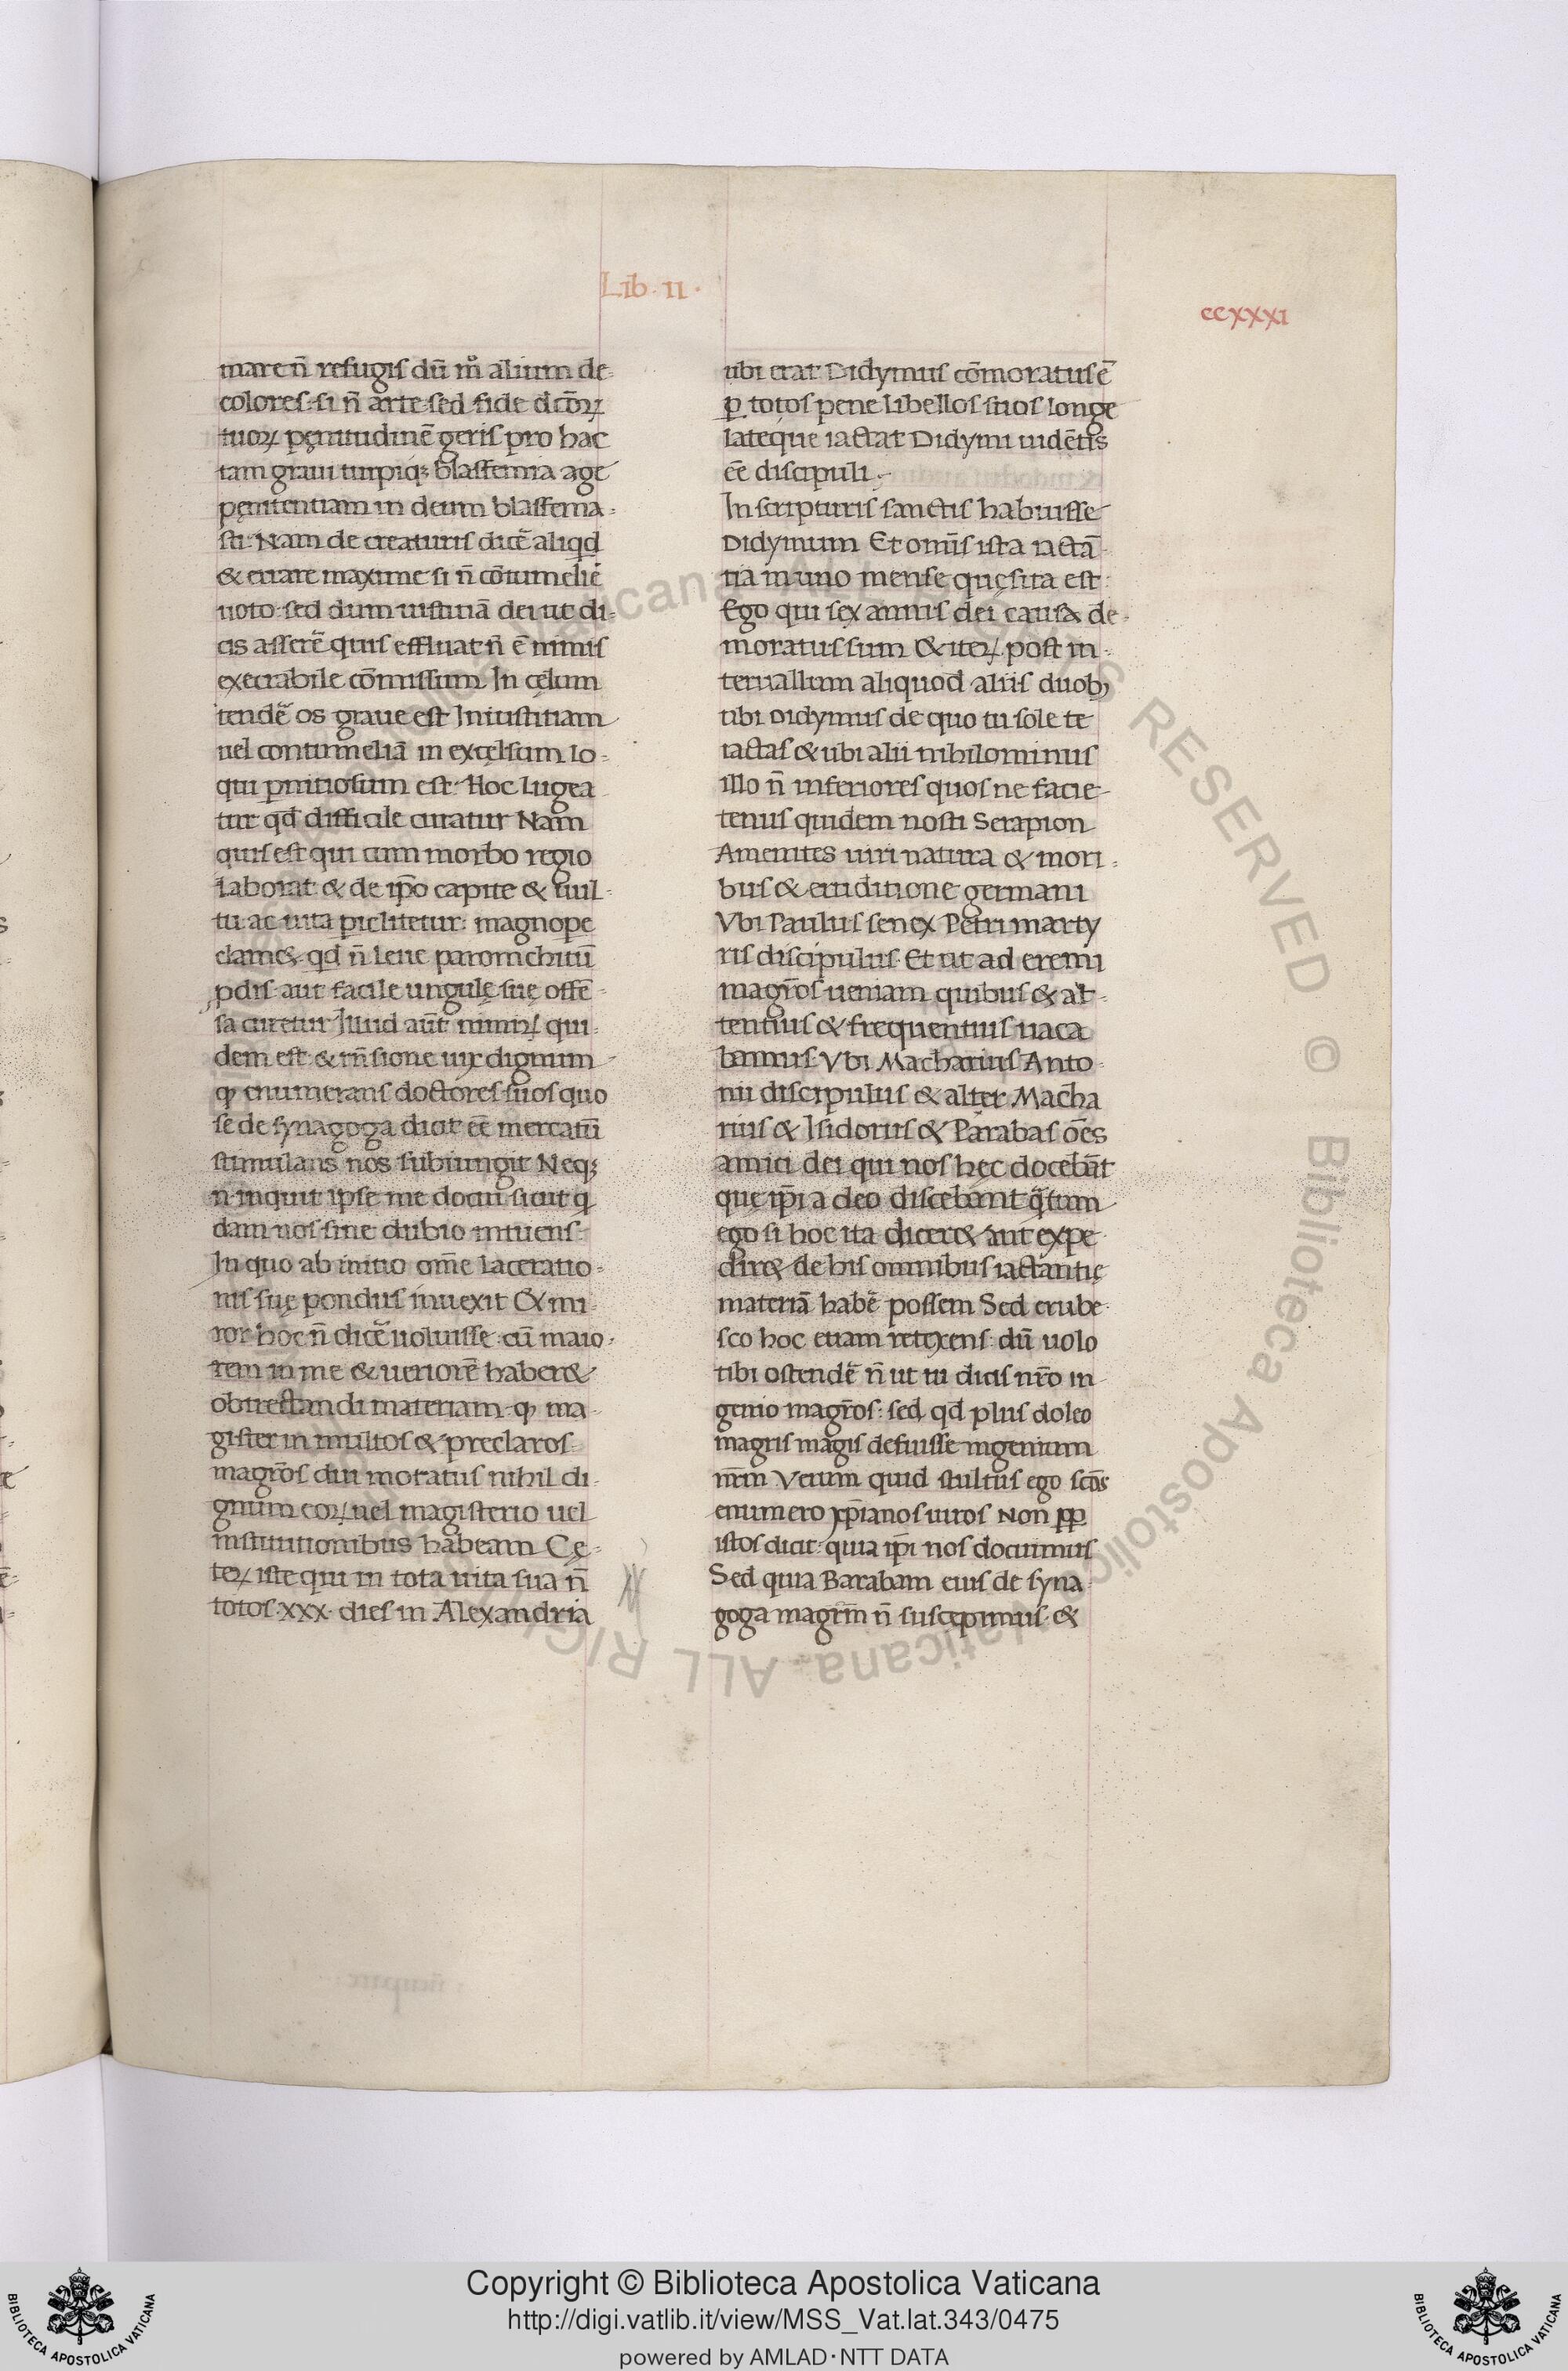 Lib · II ·
ccxxxi
mare n̄ refugis dū m̊ alium de-
colores· si n̄ arte· sed fide dc̄oꝝ
tuoꝝ pęnitudinē geris pro hac
tam graui turpiq; blasfemia age
pęnitentiam in deum blasfema-
sti· Nam de creaturis dicē aliqd
& errare maxime si n̄ cōtumelie
uoto· sed dum iustitiā dei ut di-
cis asserē quis effluat n̄ ē nimis
execrabile cōmissum In cęlum
tendē os graue est Iniustitiam
uel contumeliā in excelsum lo-
qui ꝑnitiosum est· Hoc lugea
tur qđ difficile curatur Nam
quis est qui cum morbo regio
laborat· & de ip̄o capite & uul-
tu ac uita piclitetur· magnope
clam&· qđ n̄ leue paromchiuī
pdis· aut facile ungulę suę offē-
sa curetur Illud aūt nimiꝝ qui-
dem est· & rn̄sione uix dignum
qꝫ enumerans doctores suos quo
se de synagoga dicit eē mercatū
stimulans nos subiungit Neq;
n̄ inquit ipse me docuit sicut q
dam nos sine dubio intuens·
In quo ab initio om̄e laceratio-
nis suę pondus inuexit Et mi-
ror hoc n̄ dicē uoluisse· cū maio-
rem in me & ueriorē haber&
obtrectandi materiam· qꝫ ma-
gister in multos & preclaros
magr̄os diu moratus nihil di-
gnum eoꝝ uel magisterio uel
institutionibus habeam Cę-
teꝝ iste qui in tota uita sua n̄
totos· xxx· dies in Alexandria
ubi erat Didymus cōmoratus ē
ꝑ totos pene libellos suos longe
lateque iactat Didymi uidētis
eē discipuli·
In scripturis sanctis habuisse
Didymum Et omīs ista iactā-
tia in uno mense quęsita est·
Ego qui sex annis dei causa de-
moratus sum & iteꝝ post in-
teruallum aliquod aliis duobꝫ
ubi Didymus de quo tu sole te
iactas & ubi alii nihilominus
illo n̄ inferiores quos ne facie-
tenus quidem nosti Serapion
Amenites uiri natura & mori-
bus & eruditione germani
Vbi Paulus senex Petri marty
ris discipulus· Et ut ad eremi
magr̄os ueniam quibus & at-
tentius & frequentius uaca
bamus· Vbi Macharius Anto-
nii discipulus & alter Macha
rius & Isidorus & Parabas oēs
amici dei qui nos hęc docebāt
que ip̄i a deo discebant q̄tam
ego si hoc ita dicer& aut expe
dir& de his omnibus iactantię
materiā habē possem Sed erube-
sco hoc etiam retexens· dū uolo
tibi ostendē n̄ ut tu dicis nr̄o in-
genio magr̄os· sed qđ plus doleo
magris magis defuisse ingenium
nr̄m Verum quid stultus ego scōs
enumero xp̄ianos uiros Non ꝓp
istos dicit· quia ip̄i nos docuimus
Sed quia Barabam eius de syna-
goga magrm̄ n̄ suscepimus· &
Copyright © Biblioteca Apostolica Vaticana
http://digi.vatlib.it/view/MSS_Vat.lat.343/0475
powered by AMLAD·NTT DATA
BIBLIOTECA APOSTOLICA VATICANA
BIBLIOTECA APOSTOLICA VATICANA